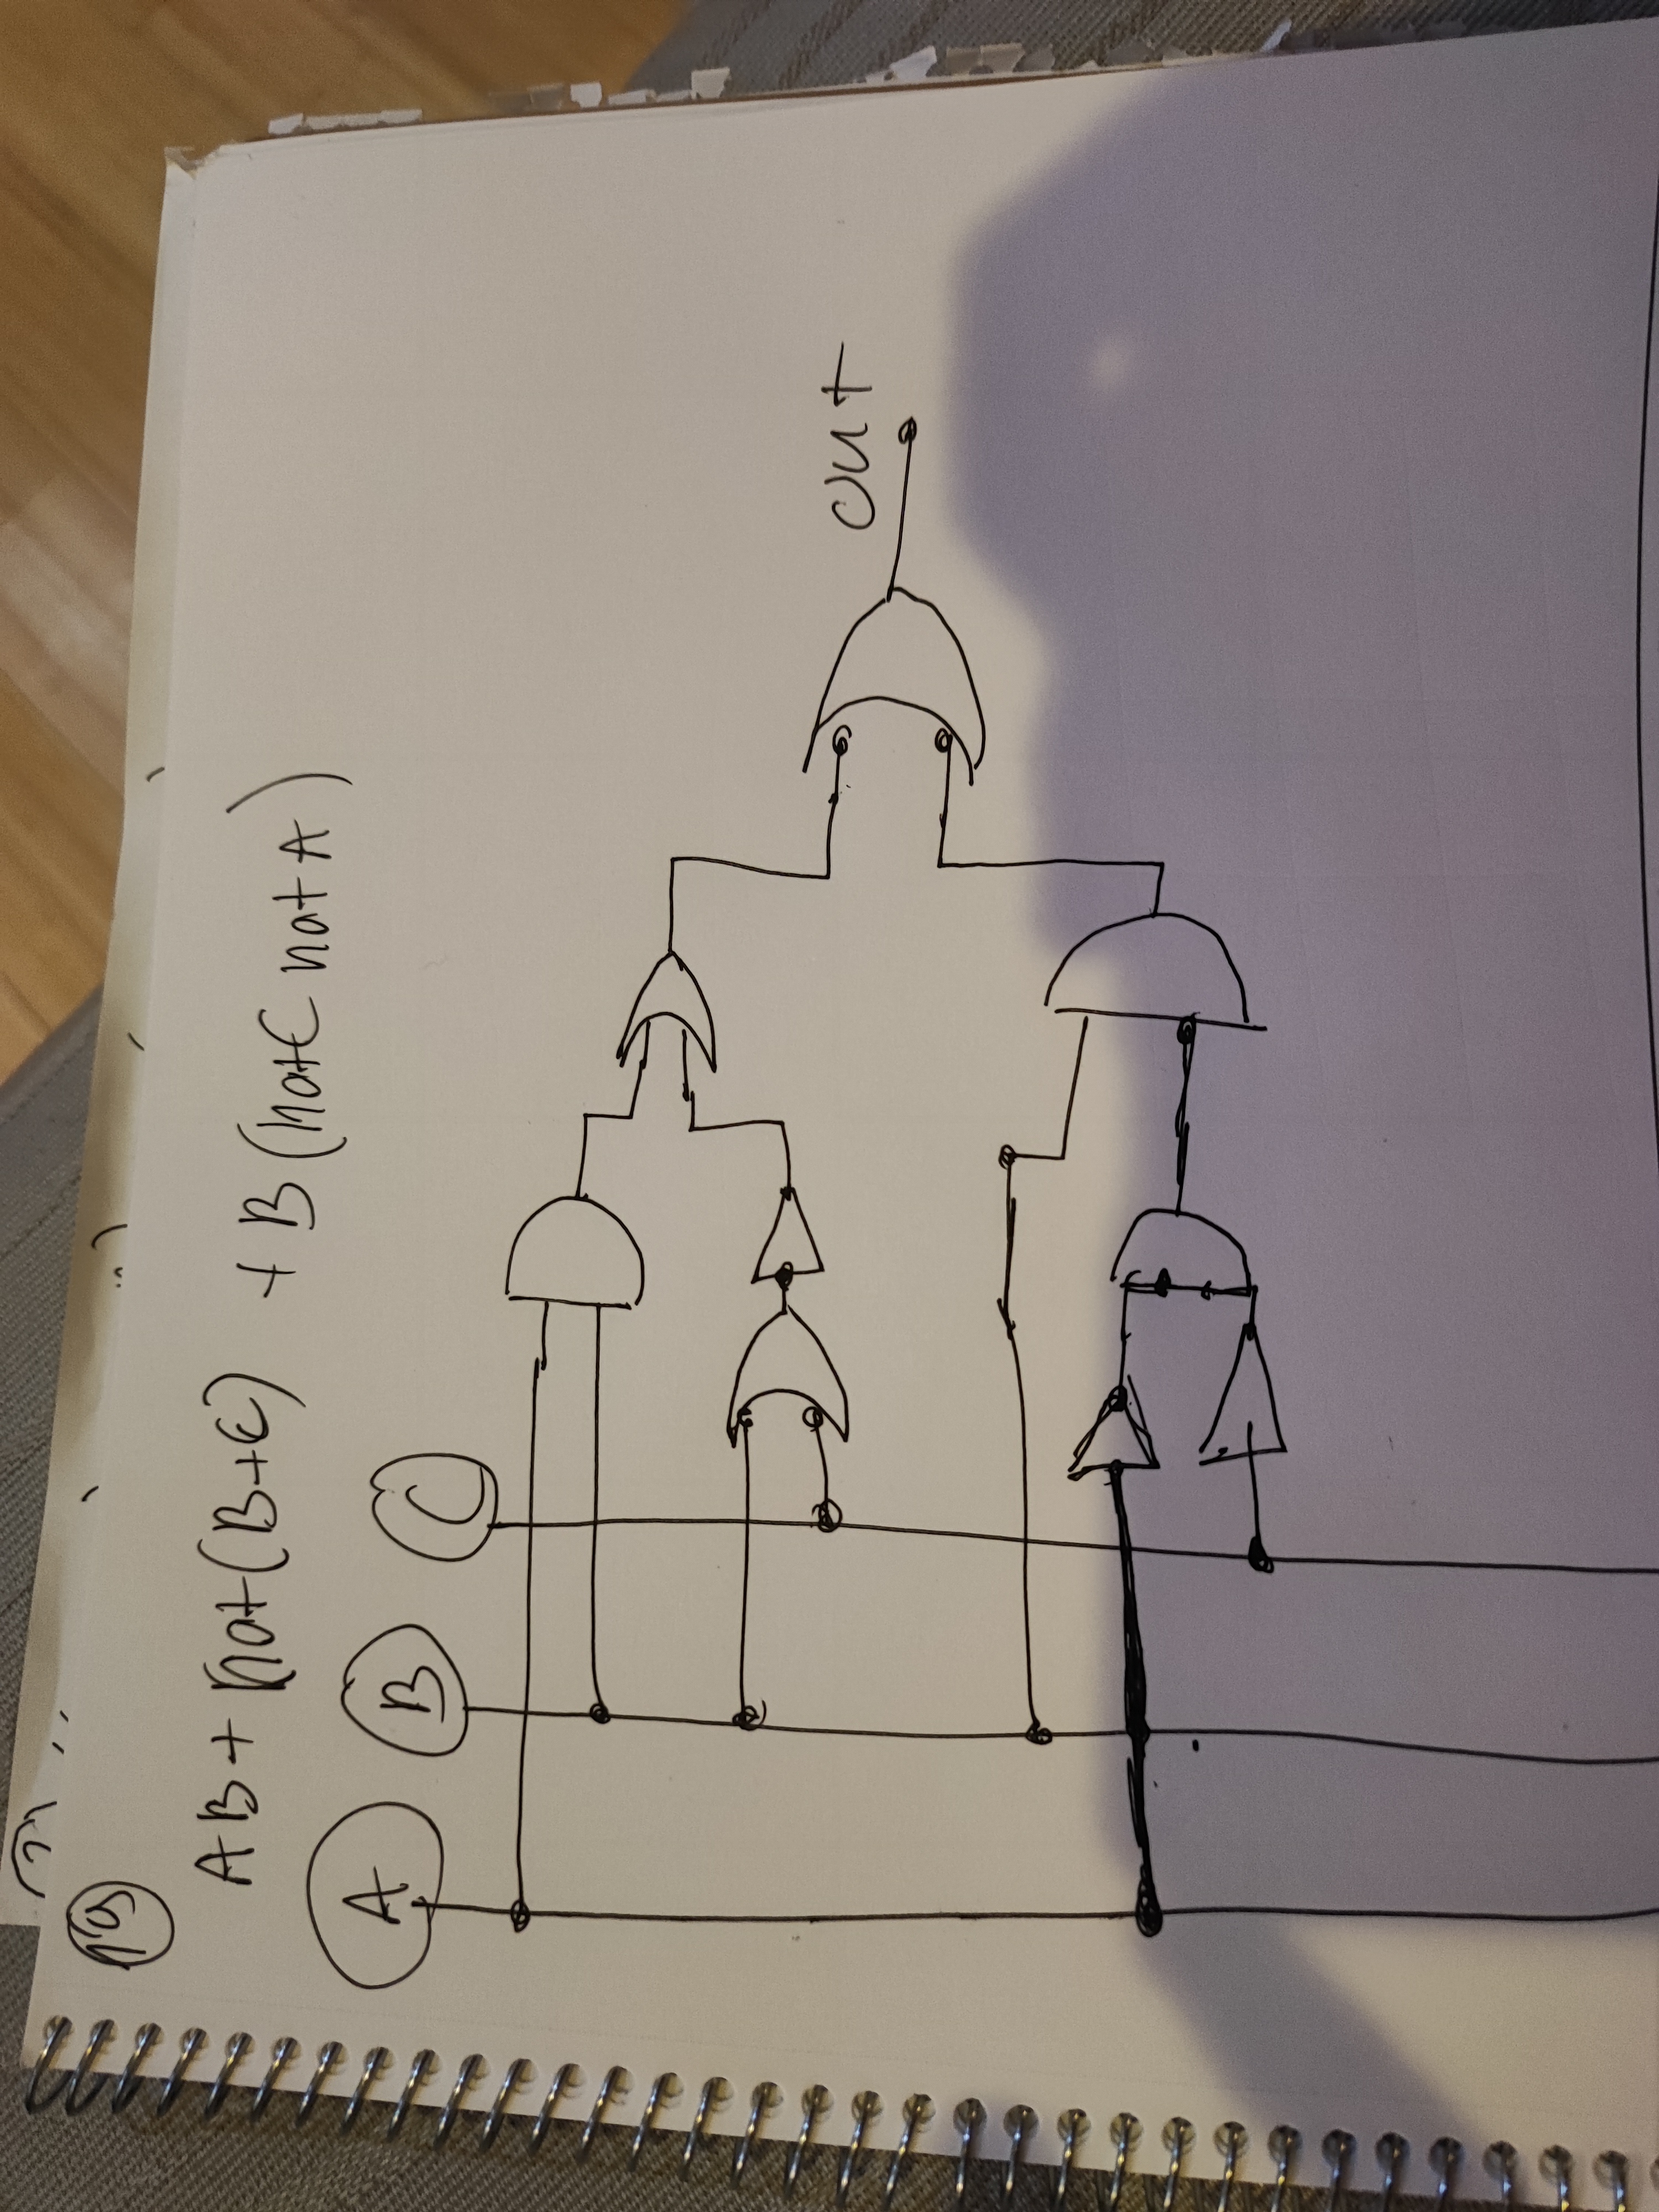 AB + not(B+C) + B(notC notA)
A
B
C
out